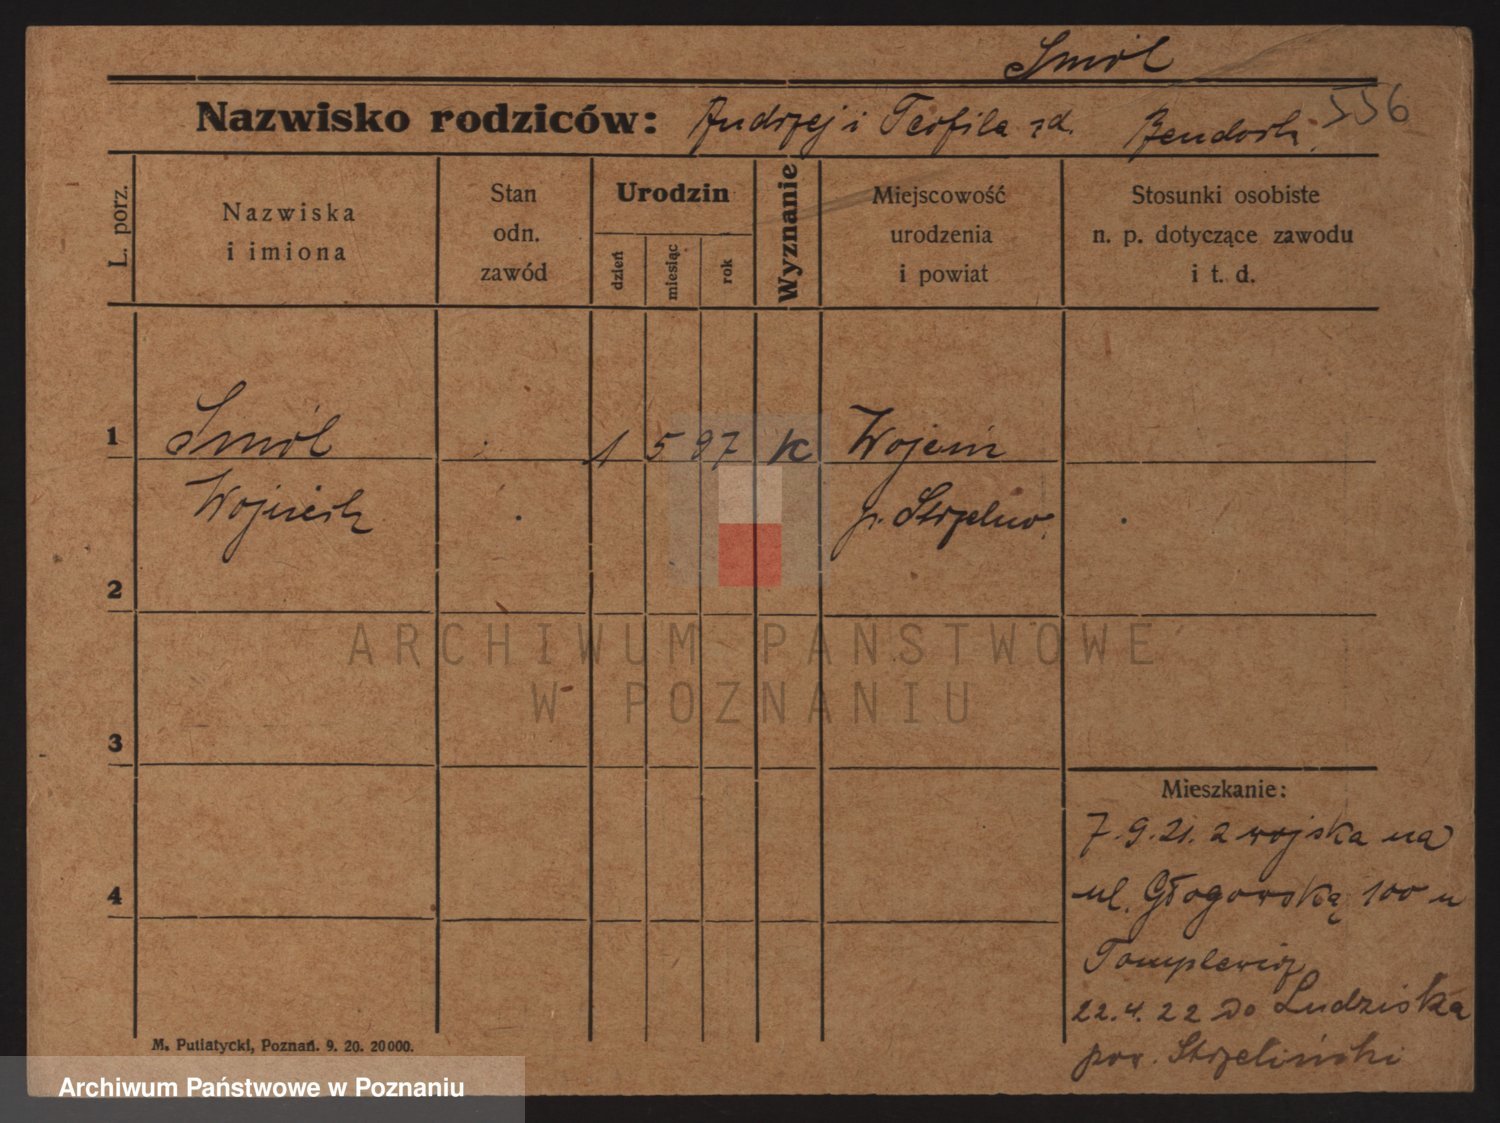 Smól
Nazwisko rodziców: Andrzej i Teofila zd.
556
L. porz.
Nazwiska
i imiona
Stan
odn.
zawód
Urodzin
dzień
miesiąc
rok
Wyznanie
Miejscowość
urodzenia
i powiat
Stosunki osobiste
n. p. dotyczące zawodu
i t. d.
1
Smól
1 5 97 K Wojcin
Wojciech
p. Strzelno.
2
3
4
Mieszkanie:
7.9.21. z wojska na
ul. Głogowską 100 u
22.4.22 do Ludziska
pow. Strzeliński
M. Putiatycki, Poznań. 9. 20. 20000.
ARCHIWUM PAŃSTWOWE
W POZNANIU
Archiwum Państwowe w Poznaniu